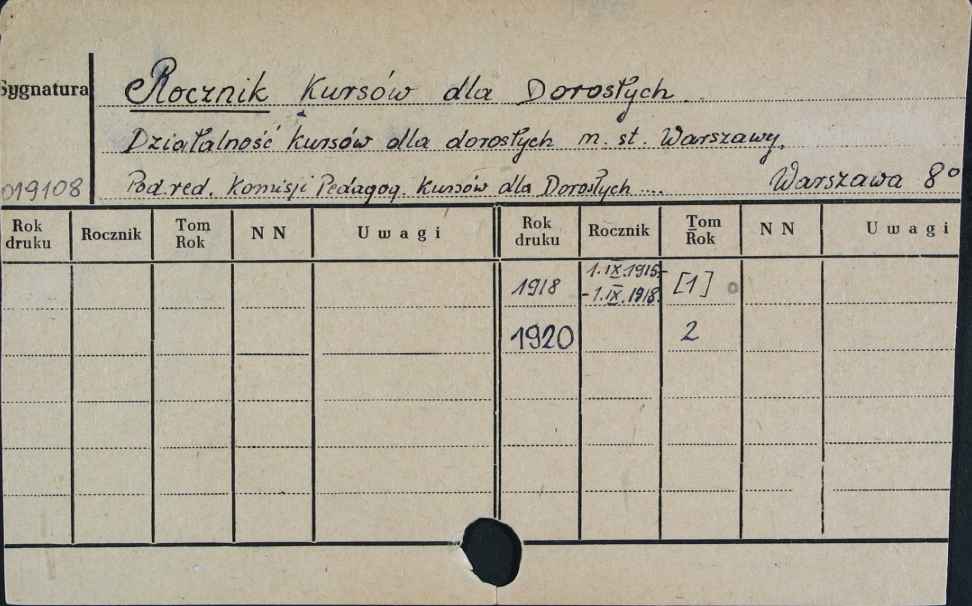 Sygnatura
Rocznik Kursów dla Dorosłych.
Działalność kursów dla dorosłych m. st. Warszawy.
019108
Pod red. Komisji Pedagog. Kursów dla Dorosłych .... Warszawa 8°
Rok druku Rocznik Tom Rok NN Uwagi Rok druku Rocznik Tom Rok NN Uwagi
1918 1.IX.1915- [1]
-1.IX.1918.
1920 2